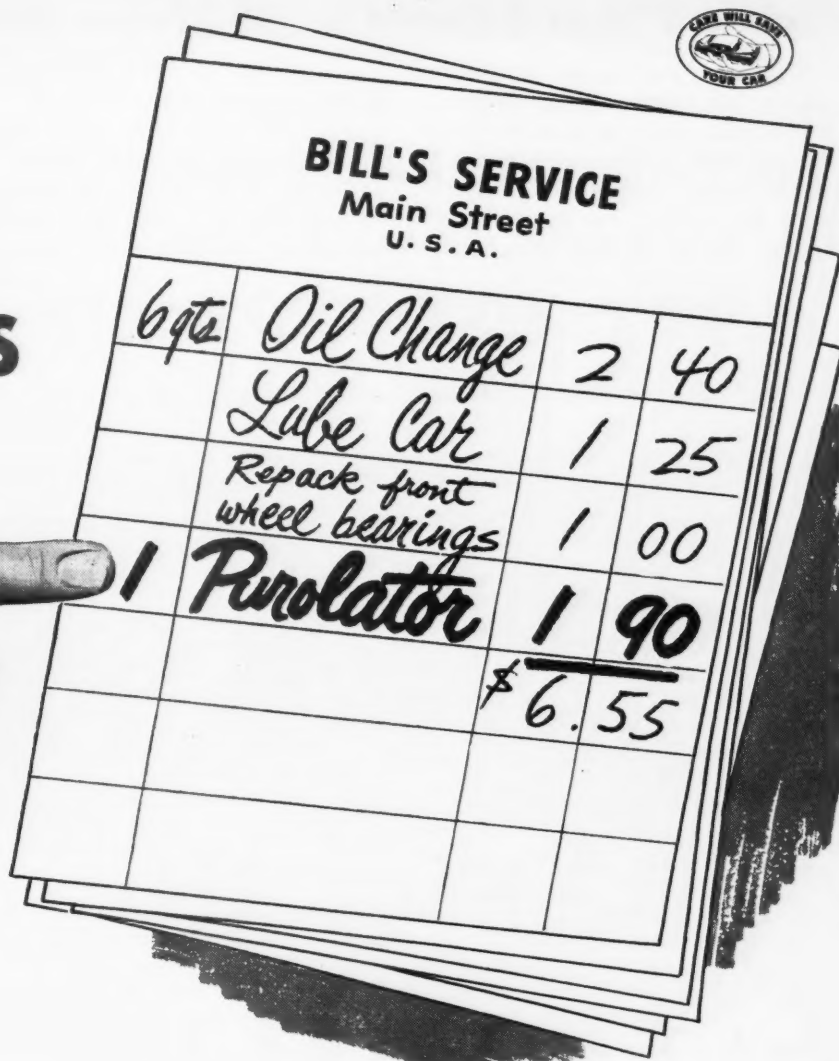 CARE WILL SAVE
YOUR CAR
BILL'S SERVICE
Main Street
U.S.A.
6 qts Oil Change 2 40
Lube Car 1 25
Repack front
wheel bearings 1 00
1 Purolator 1 90
$6.55
S